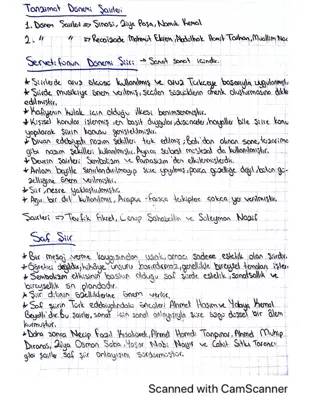 Tanzimat Dönemi Şairleri
1. Dönem Şairleri => Şinasi, Ziya Paşa, Namık Kemal
2. " " => Recaizade Mahmut Ekrem, Abdülhak Hamit Tarhan, Muallim Naci
Servetifünun Dönemi Şiiri : → Sanat sanat içindir.
* Şiirlerde aruz ölçüsü kullanılmış ve aruz Türkçeye başarıyla uygulanmıştır.
* Şiirde musikiye önem verilmiş, seçilen sözcüklerin ahenk oluşturmasına dikkat
edilmiştir.
* Kafiyenin kulak için olduğu ilkesi benimsenmiştir.
* Kişisel konular işlenmiş, en basit duygular, düşünceler, hayaller bile şiire konu
yapılarak şiirin konusu genişletilmiştir.
* Divan edebiyatı nazım şekilleri terk edilmiş, Batı'dan alınan sone, terzarima
gibi nazım şekilleri kullanılmıştır. Ayrıca serbest müstezat da kullanılmıştır.
* Devrin şairleri Sembolizm ve Parnasizm'den etkilenmişlerdir.
* Anlam beyitle sınırlandırılmayıp şiire yayılmış, parça güzelliğe değil bütün gü-
zelliğine önem verilmiştir.
* Şiir nesre yaklaştırılmıştır.
* Ağır bir dil kullanılmış, Arapça - Farsça terkiplere çokça yer verilmiştir.
Şairleri => Tevfik Fikret, Cenap Şahabettin ve Süleyman Nazif
Saf Şiir
* Bir mesaj verme kaygısından uzak, amacı sadece estetik olan şiirdir.
* Öğretici değildir, hikâye unsuru barındırmaz, genellikle bireysel temaları işler.
* Sembolizm etkisinin baskın olduğu saf şiirde estetik, sanatsallık ve
bireysellik ön plandadır.
* Şiir dilinin özelliklerine önem verilir.
* Saf şiirin Türk edebiyatındaki öncüleri Ahmet Haşim ve Yahya Kemal
Beyatlı'dır. bu şairler, sanat için sanat anlayışıyla şiire özgü düşsel bir âlem
kurmuştur.
* Daha sonra Necip Fazıl Kısakürek, Ahmet Hamdi Tanpınar, Ahmet Muhip
Dıranas, Ziya Osman Saba, Yaşar Nabi Nayır ve Cahit Sıtkı Tarancı
gibi şairler saf şiir anlayışını sürdürmüştür.
Scanned with CamScanner